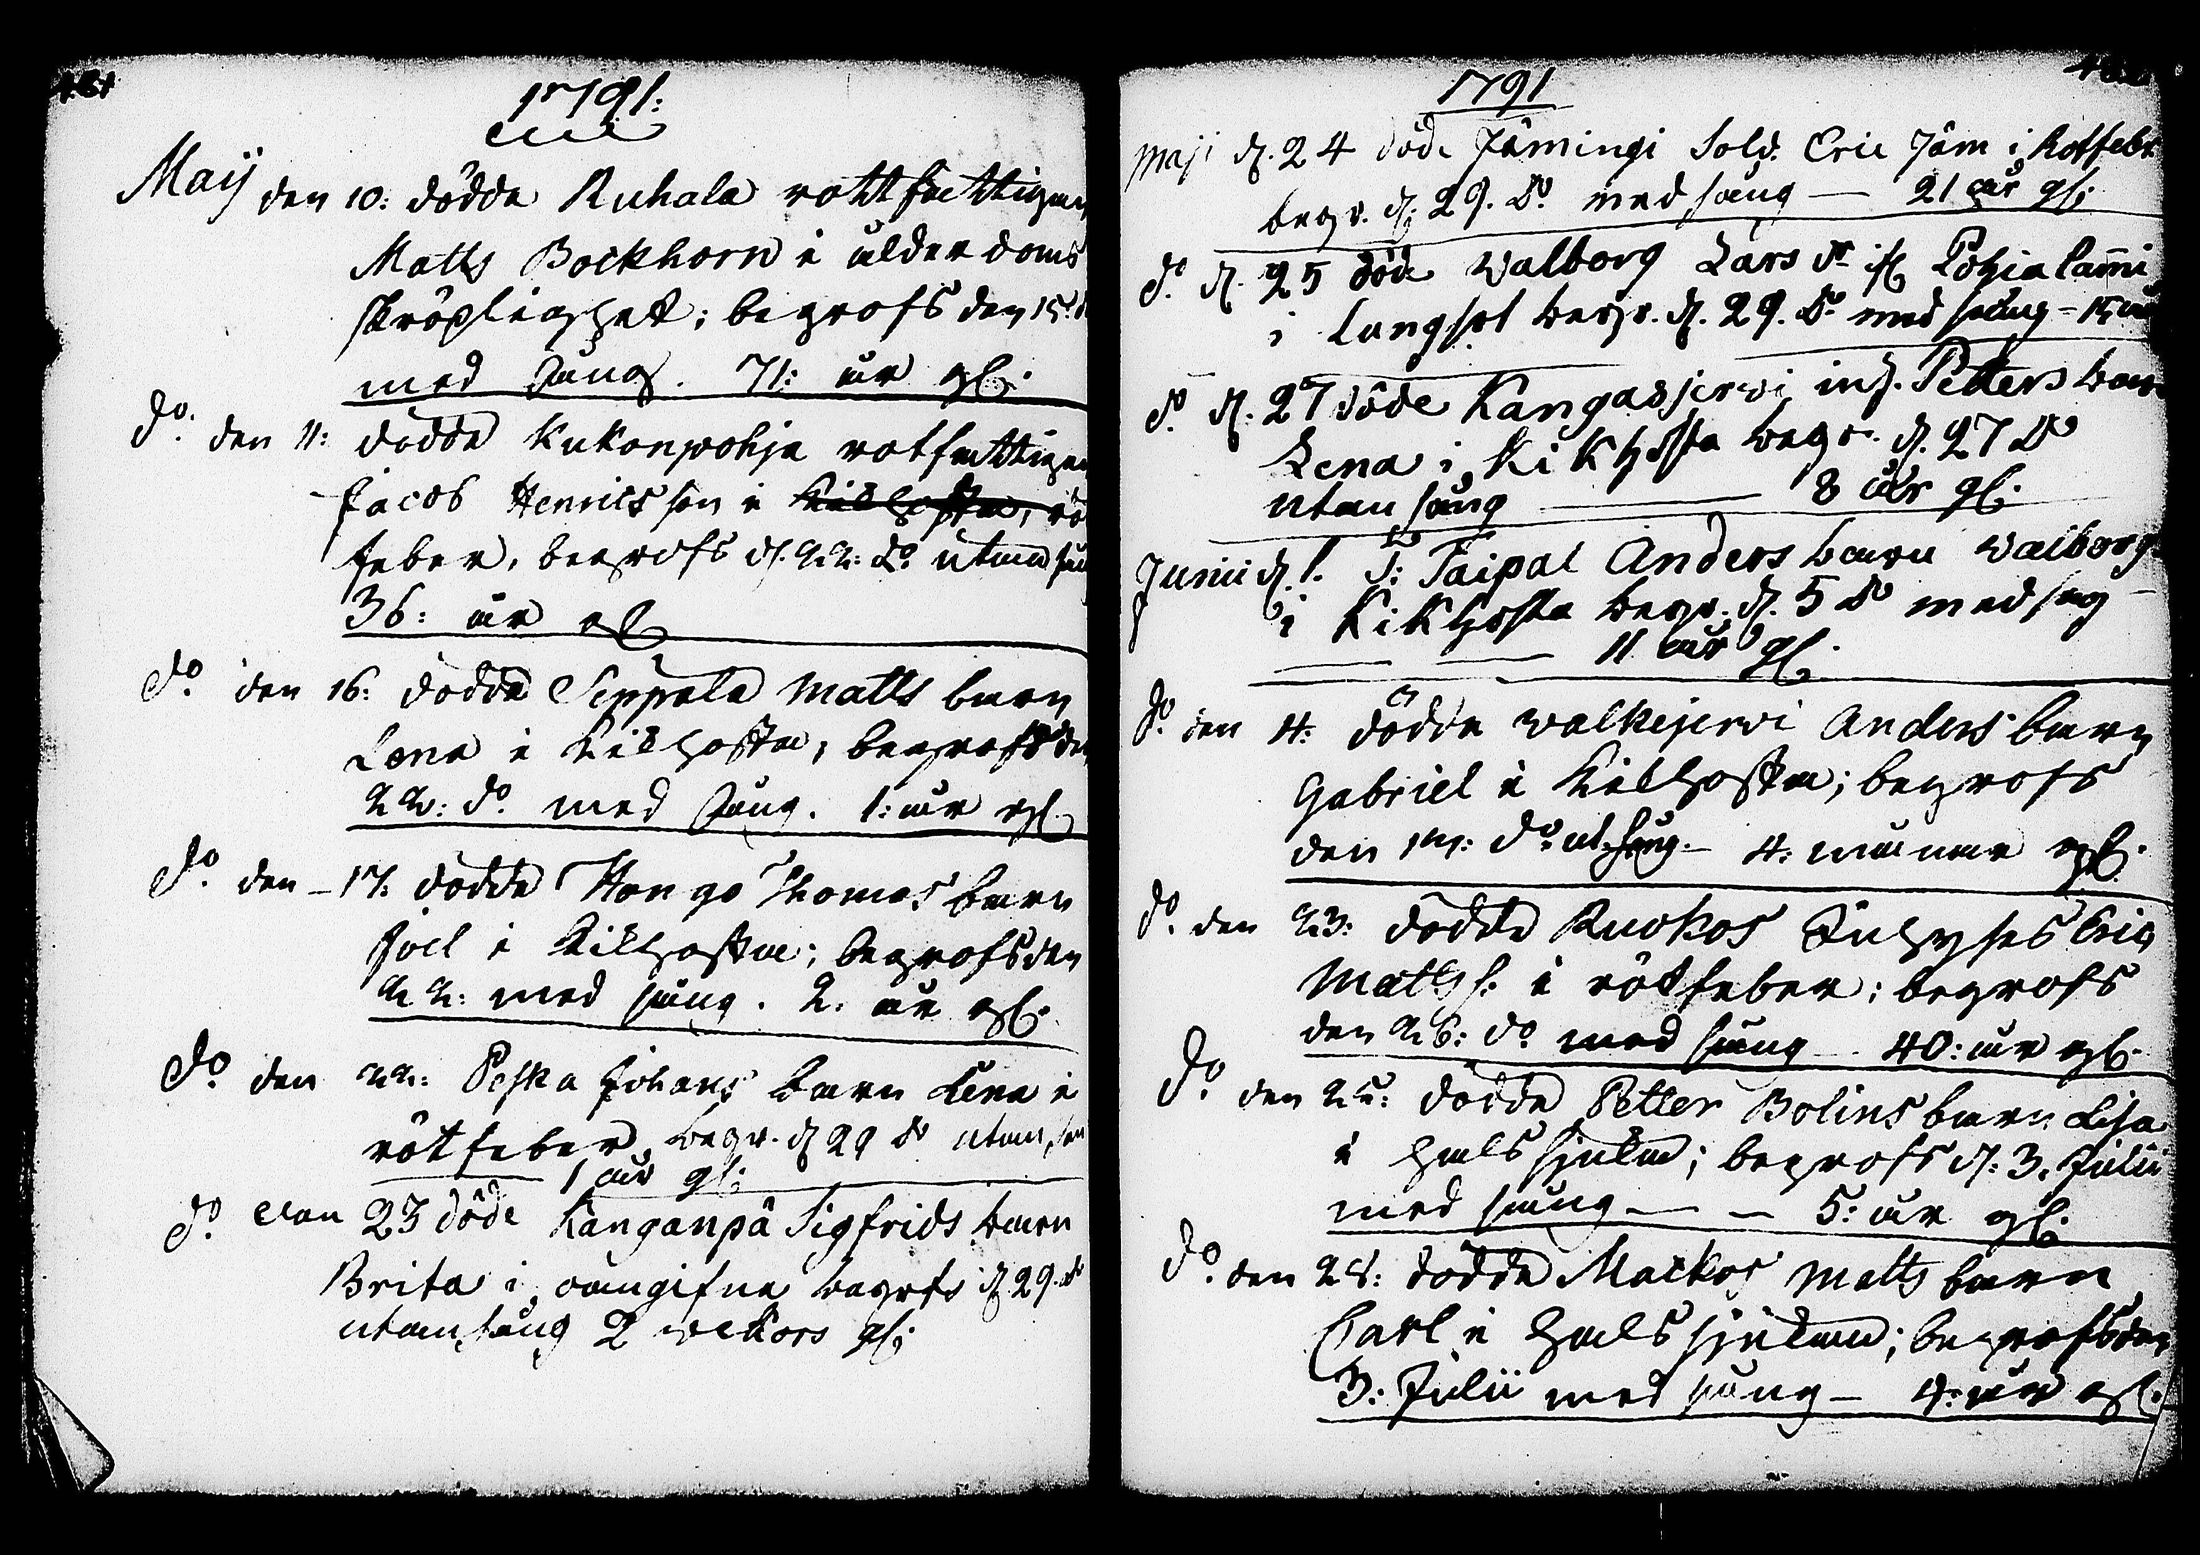 1791:
Maij den 10: dödde Ruhala rottfattigen
Matts Bockhorn i ålderdoms
skröplighet; begrofs den 15: d
med Sång. 71: år gl.
do. den 11: dödde Kukonpohja rotfattigen
Jacob Henrics son i Kikhosta, rö
feber, begrofs d. 22: do utan sån
36: år gl
do. den 16: dödde Seppala Matts barn
Lena i Kikhosta, begrofs den
22: do. med Sång. 1: år gl.
do. den 17. dödde Hongo Thomas barn
Joel i Kikhosta; begrofs den
22: med sång. 2. år gl.
do. den 22: Peska Johans barn Lena i
rötfeber begr. d 29 do utan sån
1 år gl.
do. den 23 döde Kanganpä Sigfrids barn
Brita i oangifne begrfs d 29. do
utan sång 2 wekors gl.
1791
Maji d. 24 döde Jämingi Sold. Eric Jäm i Rotfebr
begr. d. 29. do. med sång — 21 år gl.
do. d. 25 döde Walborg Lars dr ifr Pohialammi
i lungsot begr. d. 29. do. med sång - år
do. d. 27 döde Kangasjerwi inh. Petters barn
Lena i KiKhosta begr. d. 27 do
utan sång — 8 år gl.
Junii d. 1. S: Taipal Anders barn Walborg
i KiKhosta begr. d. 5 do med sng —
11 år gl.
do den 4: dödde Walkejerwi Anders barn
Gabriel i Kikhosta; begrofs
den 14: do. ut. sång. — 4: månar gl.
do. den 23: dödde Ruokos Inhyses Eric
Matts s. i rötfeber; begrofs
den 26: do med sång — 40: år gl.
do. den 25: dödde Petter Bolins barn Lisa
i halssjuka; begrofs d. 3. Julii
med sång — — 5: år gl.
do. den 28: dödde Mackos Matts barn
Carl i halssjukan; begrofs den
3: Julii med sång — 4: år gl.